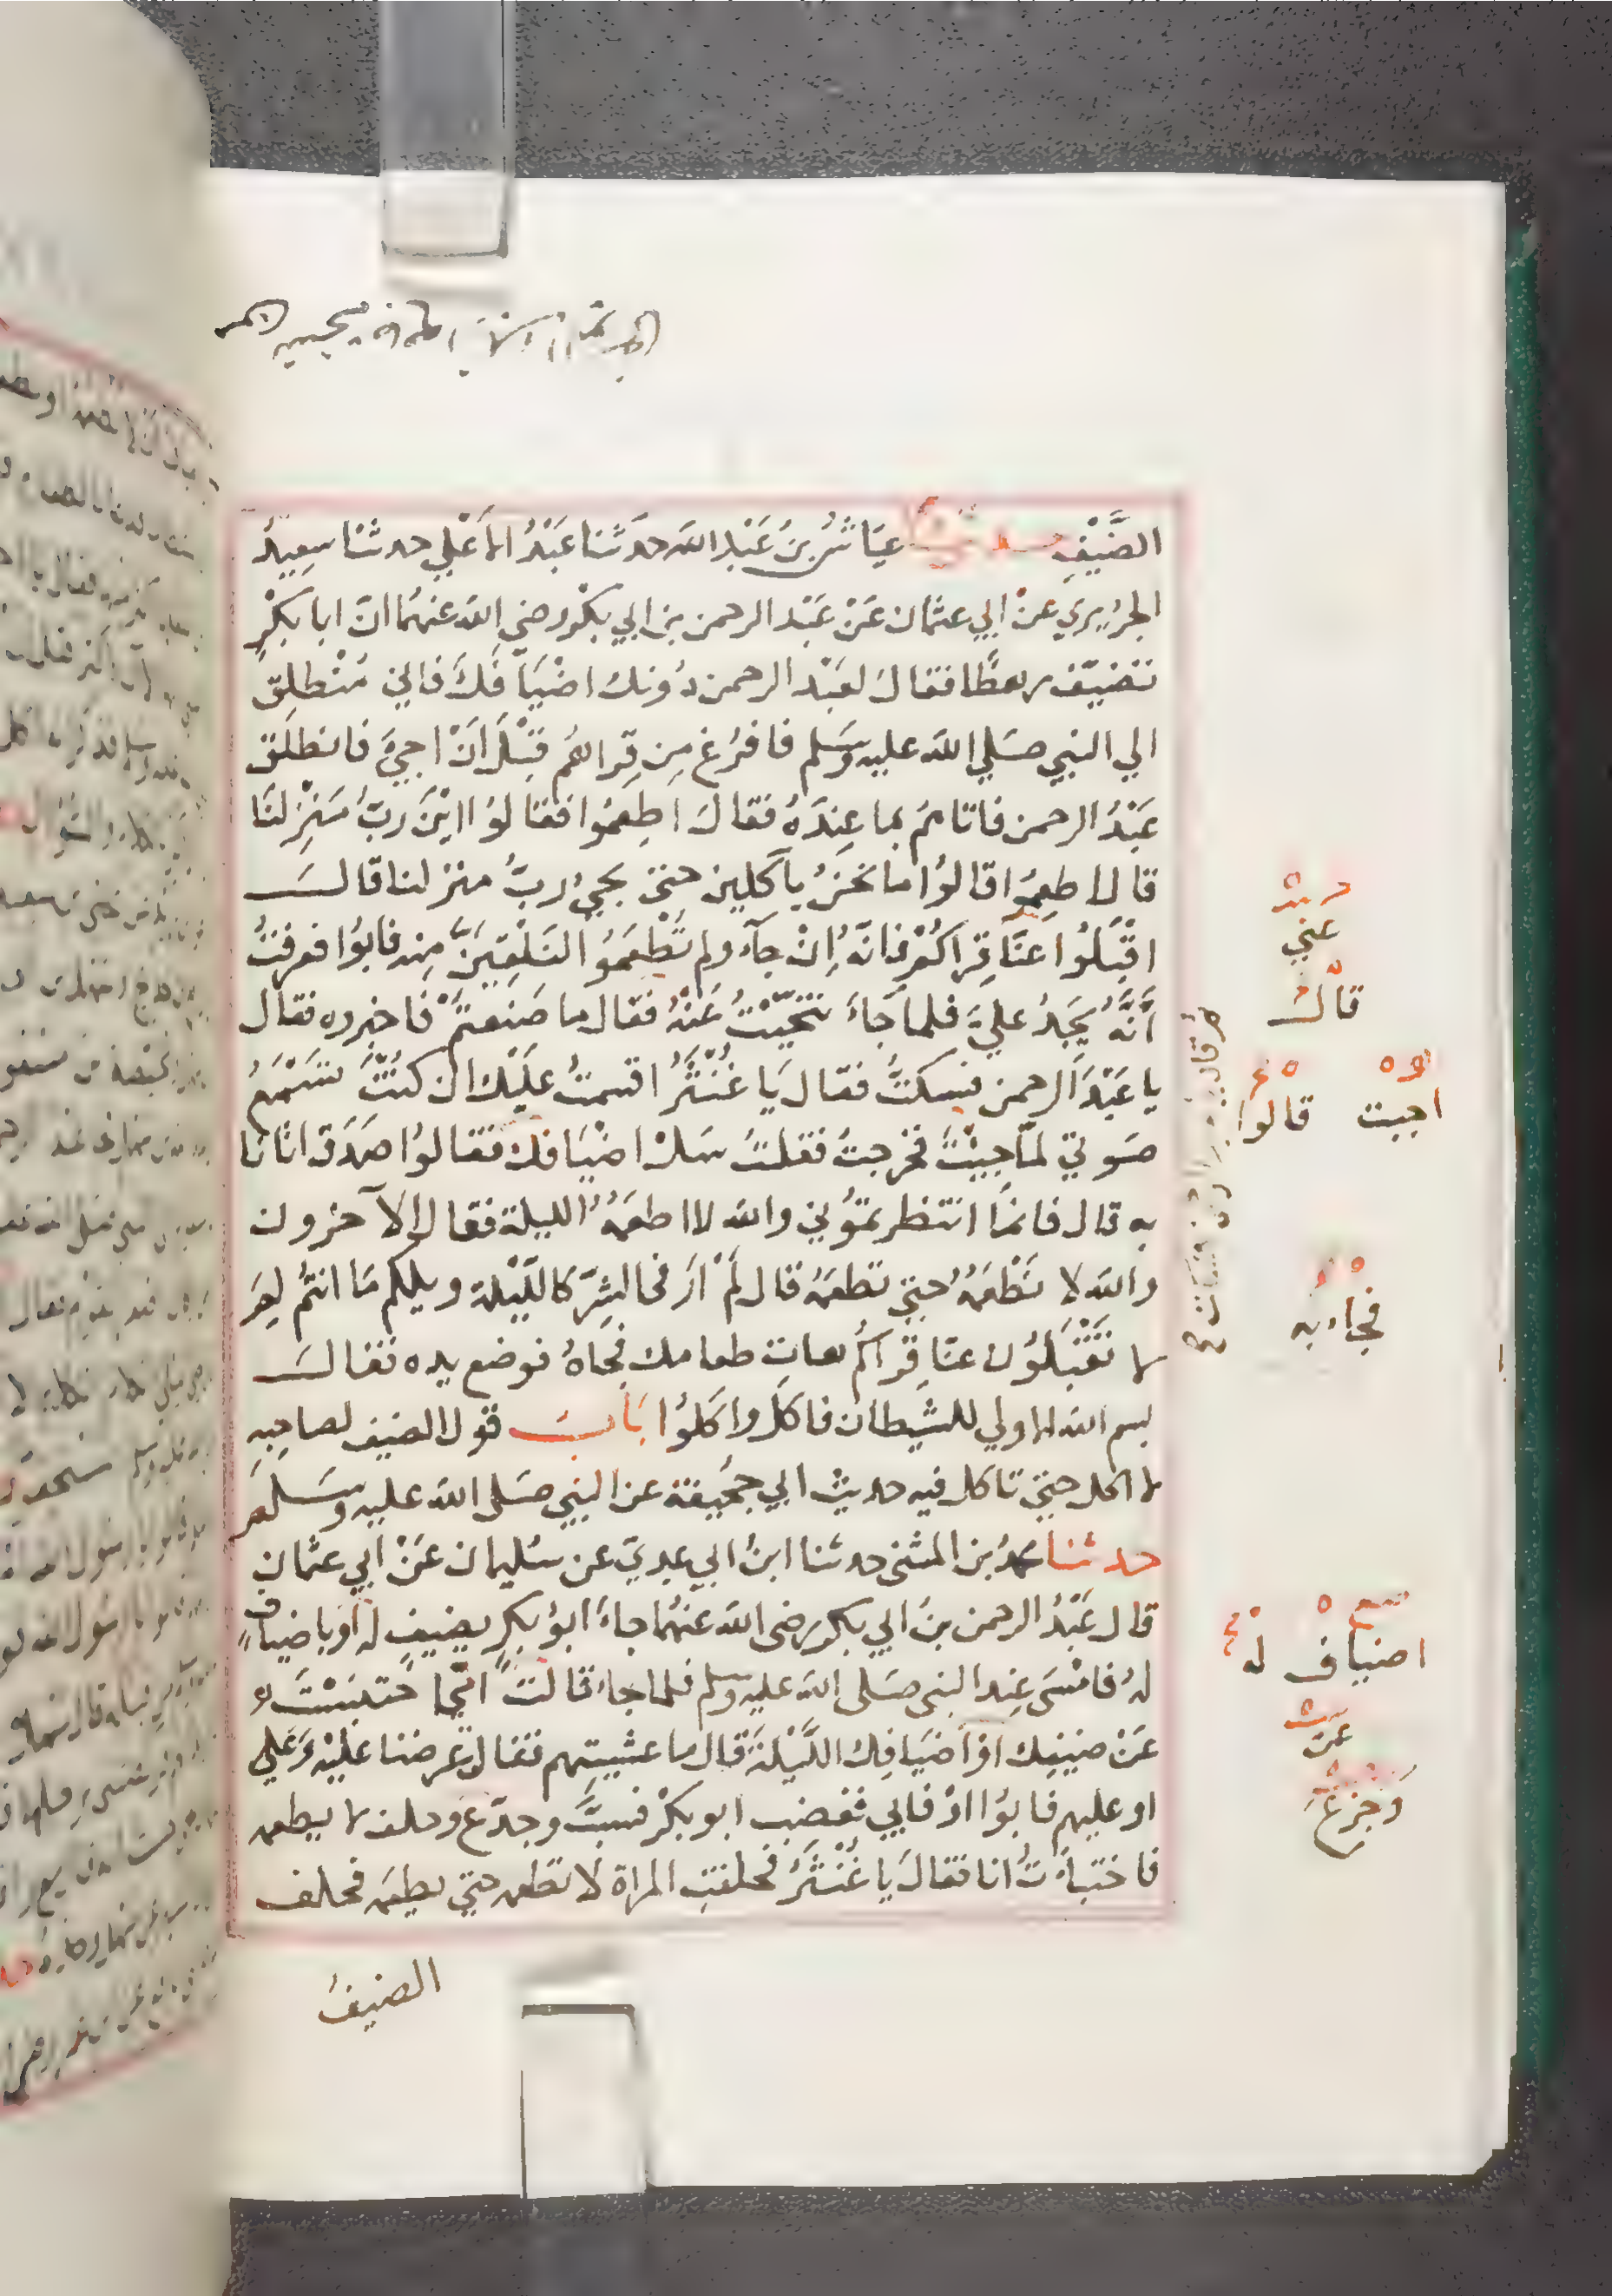 الضَّيْفِ حدثنا عيَّاشُ بنُ عَبْدِ الله حدَّثنا عَبْدُ الأَعْلي حدثنا سعِيدُ
الجُرَيري عنْ ابي عثمان عَنْ عَبْد الرحمن بن ابي بكْر رضي الله عنهُما انّ ابا بكْرٍ
تضيّف رهطًا فقالَ لعَبْد الرحمن دُونك اضْيَافَكَ فاني مُنْطلِقٌ
الي النبي صَلي الله عليه وسَلم فافرُغ مِن قِراهُم قبْلَ اَنْ اجيَ فانطلَقَ
عَبْدُ الرحمن فاتاهُم بما عِندَهُ فقالَ اطعِمُوا فقالوُا ايْنَ ربُّ مَنْزِلنَا
قال اطعِمُوا قالوُا ما نحنُ بآكلين حتى يجيُ ربُّ منزلنا قالَ
اقْبَلُوا عنَّا قِراكُمْ فانَّهُ اِنْ جآء ولم تَطْعَمُوا لنَلْقَيَنَّ مِنه فابوُا فعرفتُ
أنَّهُ يَجدُ عليَّ فلما جَاءَ تنحّيْتُ عَنْهُ فقال ما صَنعتمُ فاخبروه فقال
يا عَبْدَ الرحمن فسكتُّ فقال يَا غُنْثَرُ اقسمتُ علَيْك ان كنْتَ تسْمَعُ
صَوتي لمّا جيْتَ فخرجتُ فقلتُ سَلْ اضْيَافك فقالوُا صَدَق اتانا
به قال فانمَا انتظرتموُني والله لا اطعَمُهُ الليلة فقال الآخرون
والله لا نَطْعَمُهُ حتى تطعمَهُ قال لَمْ ارَ في الشرّ كاللّيْلة ويلكم مَا انتُم لِمَ
لا تَقْبَلوُن عنّا قِراكُم هاتِ طعامك فجَاهُ فوضع يده فقالَ
بسم الله الاولي للشيطان فاكل واكلوُا بَابُ قول الضيف لصاحِبِهِ
لا اكل حتى تاكل فيه حديث ابي جُحيفة عن النبي صَلى الله عليه وسَلم
حدثنا محمدُ بن المثنى حدثنا ابنُ ابي عدي عن سُليمان عَنْ ابي عثمان
قال عَبْدُ الرحمن بنُ ابي بكر رضى الله عنهُما جاءَ ابوُ بكرٍ بضيفٍ له اَو باضيافٍ
لهُ فامْسَى عِند النبى صَلى الله عليه وسلم فلما جاءَ قالت امّي احتبَسْتَ
عَنْ ضيفك او اَضيَافِك اللَّيْلةَ قال ما عشيتِهم فقالت عَرضنا علَيْهِ وَعَلي
او عليهم فابوُا اوْ فابي فغضب ابو بكْر فسبَّ وجدّع وحلف لا يطعمه
فاختبأتُ انا فقالَ يا غُنْثَرُ فحلفتِ المراة لا تطعمه حتى يطعمَه فحلف
الضيفُ
عني
قال
اجيت قالوا
فجاء به
اضياف له
عن
وَجزع